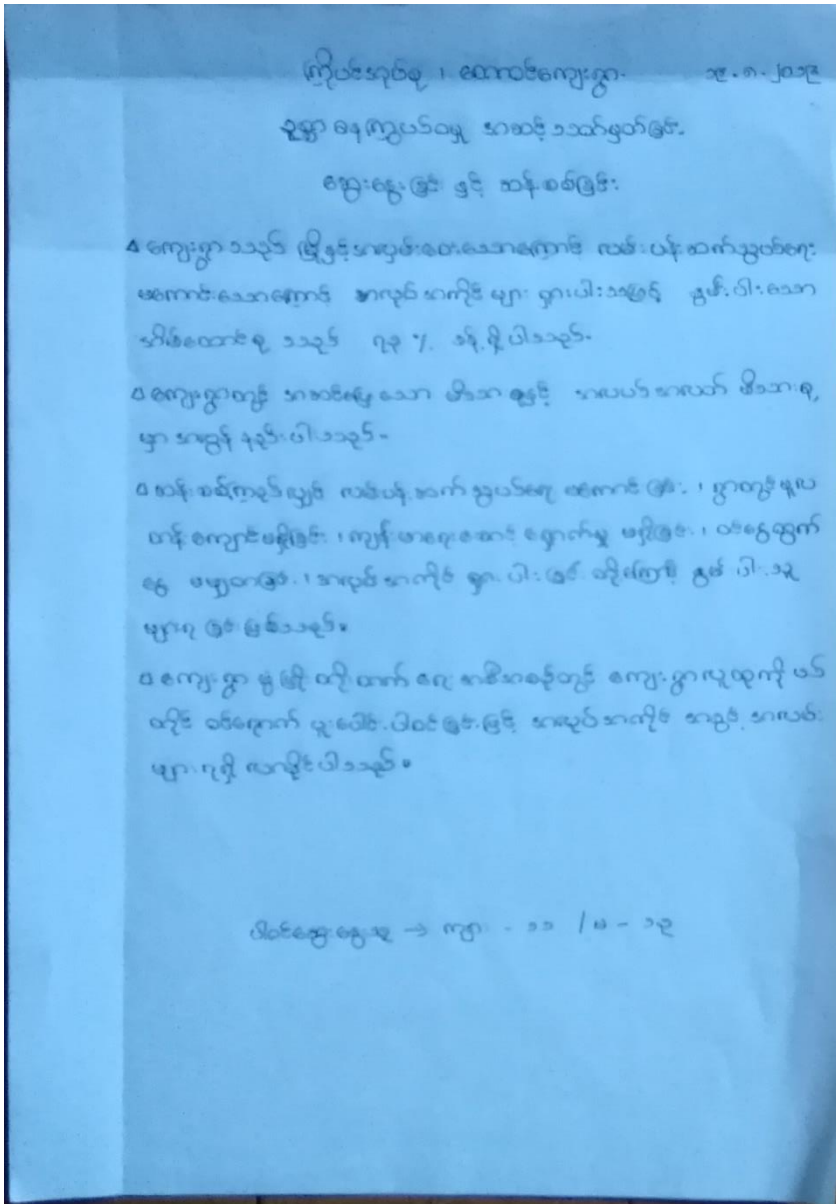 ကြိုပင်အုပ်စု ၊ တောဝင်ကျေးရွာ ၁၉.၈.၂၀၁၃
ဥစ္စာဓနကြွယ်ဝမှု အဆင့်သတ်မှတ်ခြင်း
ဆွေးနွေးခြင်း နှင့် ဆန်းစစ်ခြင်း
ကျေးရွာသည် မြို့နှင့်အလှမ်းဝေးသောကြောင့် လမ်းပန်းဆက်သွယ်ရေး
မကောင်းသောကြောင့် အလုပ်အကိုင်များ ရှားပါးသဖြင့် နွမ်းပါးသော
အိမ်ထောင်စုသည် ၇၃ % ခန့် ရှိပါသည်။
ကျေးရွာတွင် အဆင်ပြေသော မိသားစုနှင့် အလယ်အလတ် မိသားစု
မှာ အလွန်နည်းပါးသည်။
ဆန်းစစ်ကြည့်လျှင် လမ်းပန်းဆက်သွယ်ရေး မကောင်းခြင်း ၊ ရွာတွင်မူလ
တန်းကျောင်းမရှိခြင်း ၊ ကျန်းမာရေးစောင့်ရှောက်မှု မရှိခြင်း ၊ ဝင်ငွေထွက်
ငွေ မမျှတခြင်း ၊ အလုပ်အကိုင် ရှားပါးခြင်း တို့ကြောင့် နွမ်းပါးသူ
များရခြင်း ဖြစ်သည်။
ကျေးရွာ ဖွံ့ဖြိုးတိုးတက်ရေး အစီအစဉ်တွင် ကျေးရွာလူထုကိုယ်
တိုင် ဝင်ရောက် ပူးပေါင်းပါဝင်ခြင်းဖြင့် အလုပ်အကိုင် အခွင့်အလမ်း
များ ရရှိလာနိုင်ပါသည်။
ပါဝင်ဆွေးနွေးသူ → ကျား - ၁၁ / မ - ၁၃